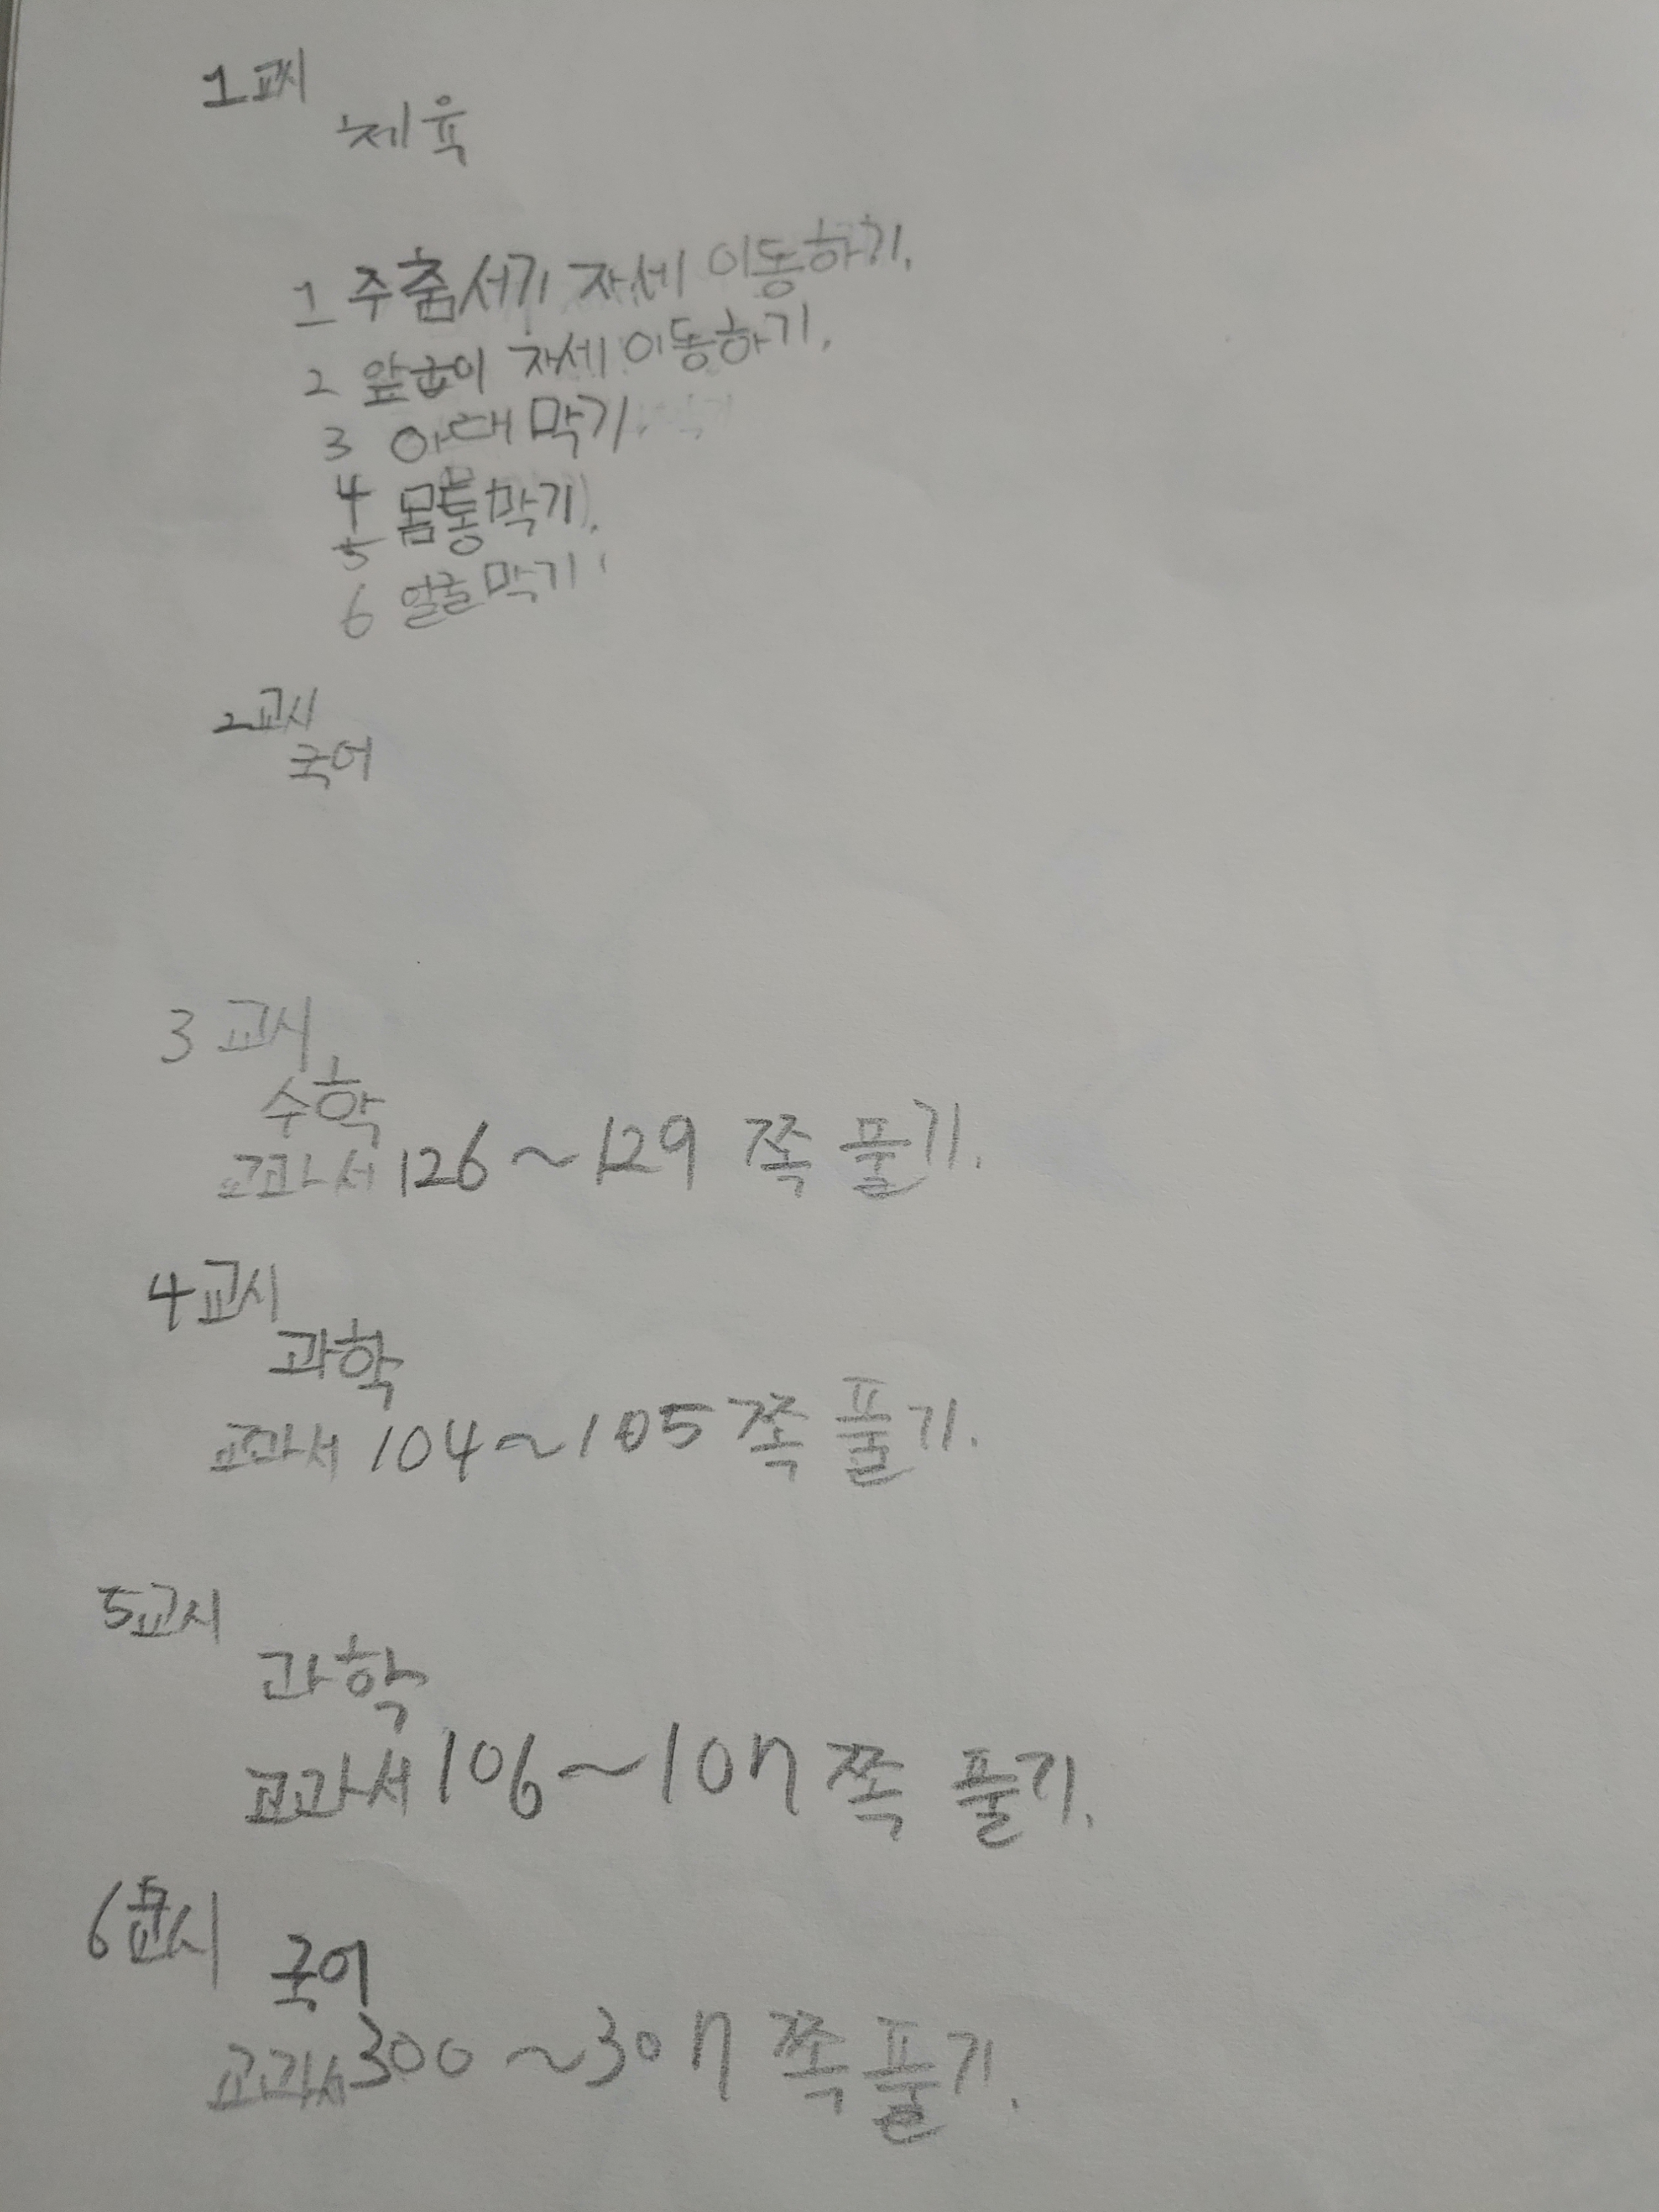 1교시
체육
1 주춤서기 자세 이동하기.
2 앞굽이 자세 이동하기.
3 아래 막기.
4 몸통막기.
5
6 얼굴막기.
2교시
국어
3 교시
수학
교과서 126~129 쪽 풀기.
4교시
과학
교과서 104~105쪽 풀기.
5교시
과학
교과서 106~107 쪽 풀기.
6교시
국어
교과서 300~307 쪽 풀기.